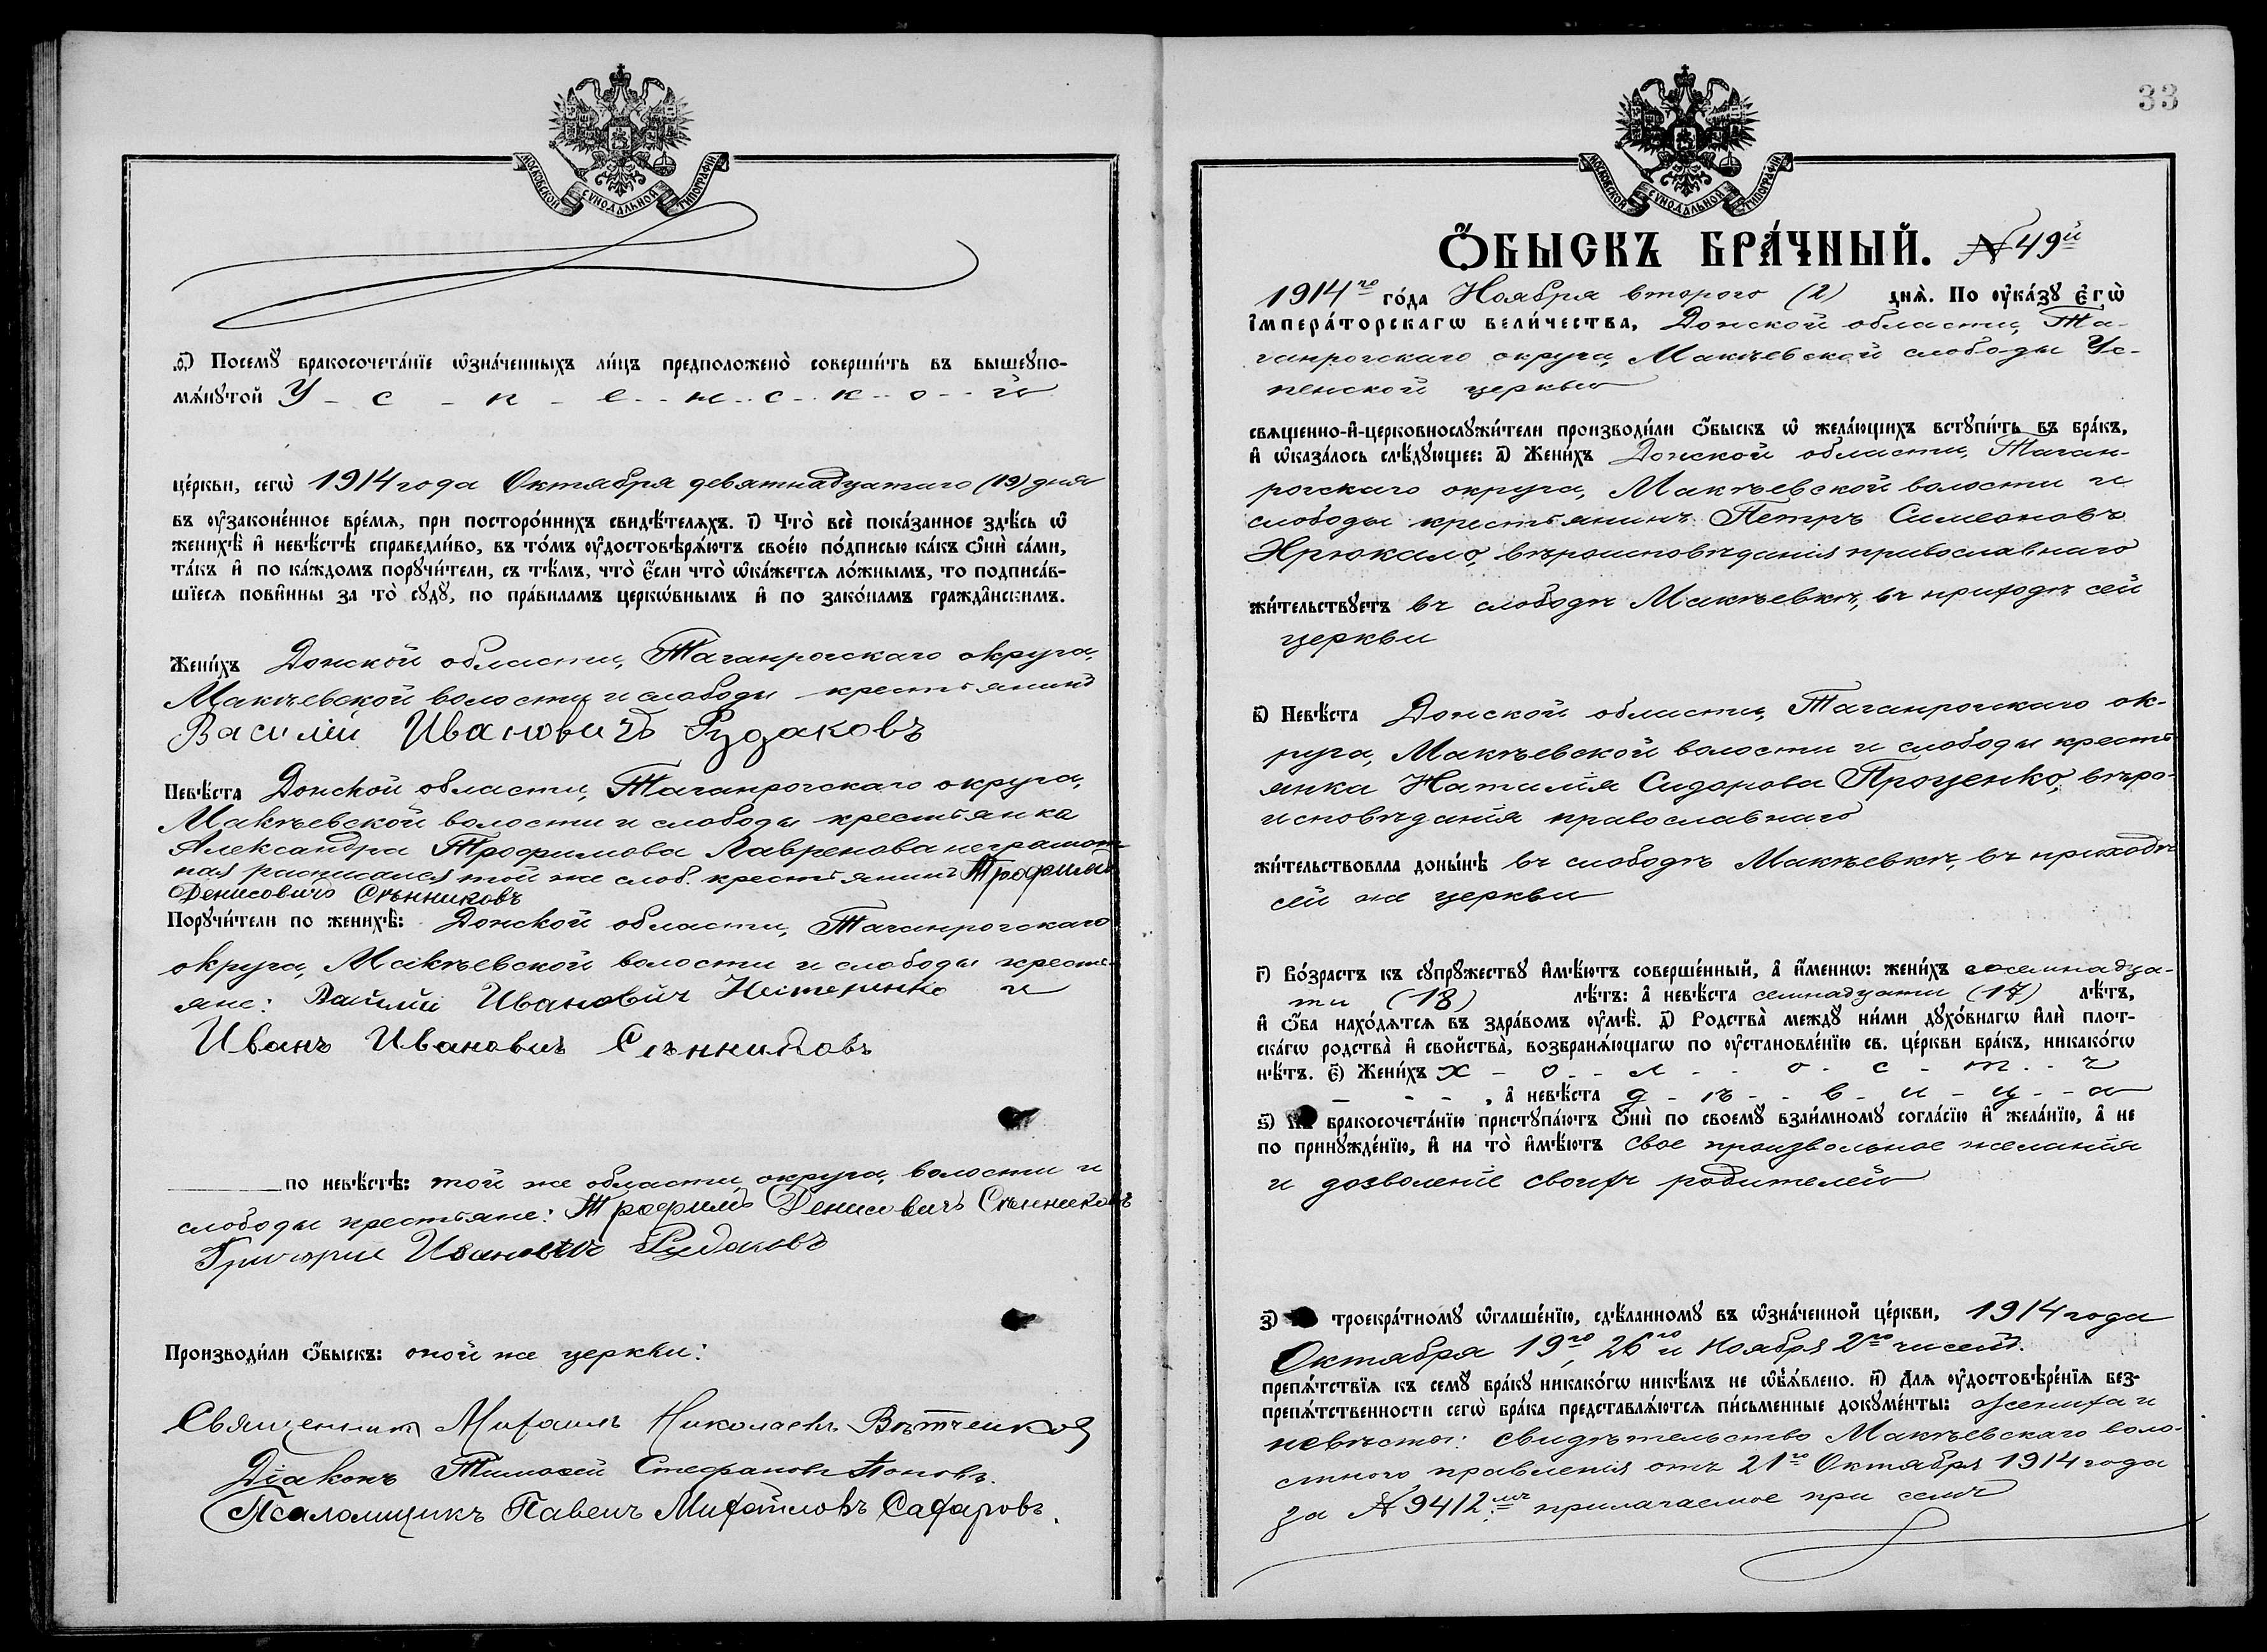 МОСКОВСКОЙ СѴНОДАЛЬНОЙ ТИПОГРАФІИ
ѳ҃) Посемꙋ̀ бракосочета́нїе ѡ҆зна́ченныхъ ли́цъ предположено̀ соверши́ть въ вышеꙋпо-
мѧ́нꙋтой У - с - п - е - н - с - к - о - й
це́ркви, сегѡ̀ 1914 года Октября девятнадцатаго (19) дня
въ ᲂу҆законе́нное вре́мѧ, при посторо́ннихъ свидѣ́телѧхъ. і҃) Что̀ всѐ пока́занное здѣ́сь ѡ҆
женихѣ̀ и҆ невѣ́стѣ справедли́во, въ то́мъ ᲂу҆достовѣрѧ́ютъ свое́ю по́дписью ка́къ ѻ҆нѝ са́ми,
та́къ и҆ по ка́ждомъ порꙋчи́тели, съ тѣ́мъ, что̀ є҆́сли что̀ ѡ҆ка́жетсѧ ло́жнымъ, то подписа́в-
шїесѧ пови́нны за то̀ сꙋдꙋ̀, по пра́виламъ церкѡ́внымъ и҆ по зако́намъ гражда̑нскимъ.
Жени́хъ Донской области, Таганрогскаго округа,
Макѣевской волости и слободы крестьянинъ
Василій Ивановичъ Рудаковъ
Невѣ́ста Донской области, Таганрогскаго округа,
Макѣевской волости и слободы крестьянка
Александра Трофимова Лавренова неграмот-
ная расписался той же слоб. крестьянинъ Трофимъ
Денисовичъ Сѣнниковъ
Порꙋчи́тели по женихѣ̀: Донской области, Таганрогскаго
округа, Макѣевской волости и слободы кресть-
яне: Иванович Нестеренко и
Иванъ Ивановичъ Сѣнниковъ
по невѣ́стѣ: той же области, округа, волости и
слободы крестьяне: Трофимъ Денисовичъ Сѣнниковъ
Григорие Ивановичъ Рудаковъ
Производи́ли ѻ҆́быскъ: оной же церкви:
Священникъ Михаилъ Николаевъ
Діаконъ Тимоѳей Стефановъ Поповъ.
Псаломщикъ Павелъ Михайловъ Сафаровъ.
33
МОСКОВСКОЙ СѴНОДАЛЬНОЙ ТИПОГРАФІИ
Ѻ҆́БЫСКЪ БРА́ЧНЫЙ. № 49й
1914го го́да Ноября второго (2) днѧ̀. По ᲂу҆ка́зꙋ Є҆гѡ̀
І҆мпера́торскагѡ вели́чества, Донской области, Та-
ганрогскаго округа, Макѣевской слободы Ус-
пенской церкви
свѧщенно-и҆-церковнослꙋжи́тели производи́ли ѻ҆́быскъ ѡ҆ жела́ющихъ встꙋпи́ть въ бра́къ,
и҆ ѡ҆каза́лось слѣ́дꙋющее: а҃) Жени́хъ Донской области, Таган-
рогскаго округа, Макѣевской волости и
слободы крестьянинъ Петръ Симеоновъ
Хрюкало, вѣроисповѣданія православнаго
жи́тельствꙋетъ въ слободѣ Макѣевкѣ, въ приходѣ сей
церкви
в҃) Невѣ́ста Донской области, Таганрогскаго ок-
руга, Макѣевской волости и слободы кресть-
янка Наталія Сидорова Проценко, вѣро-
исповѣданія православнаго
жи́тельствовала доны́нѣ въ слободѣ Макѣевкѣ, въ приходѣ
сей же церкви
г҃) Во́зрастъ къ сꙋпрꙋ́жествꙋ и҆мѣ́ютъ соверше́нный, а҆ и҆́меннѡ: жени́хъ восемнадца-
ти (18) лѣ́тъ: а҆ невѣ́ста семнадцати (17) лѣ́тъ,
и҆ ѻ҆́ба нахо́дѧтсѧ въ здра́вомъ ᲂу҆мѣ̀. д҃) Родства̀ междꙋ ни́ми дꙋхо́внагѡ и҆лѝ плот-
ска́гѡ родства̀ и҆ сво́йства̀, возбранѧ́ющагѡ по ᲂу҆становле́нїю св. це́ркви бра́къ, никако́гѡ
нѣ́тъ. є҃) Жени́хъ х - о - л - о - с - т - ъ
- - - , а҆ невѣ́ста д - ѣ - в - и - ц - а
ѕ҃) бракосочета́нїю пристꙋпа́ютъ ѻ҆нѝ по своемꙋ̀ взаи́мномꙋ согла́сїю и҆ жела́нїю, а҆ не
по принꙋжде́нїю, и҆ на то̀ и҆мѣ́ютъ свое произвольное желанія
и дозволеніе своихъ родителей
з҃) троекра́тномꙋ ѡ҆глаше́нїю, сдѣ́ланномꙋ въ ѡ҆зна́ченной це́ркви, 1914 года
Октября 19го, 26го и Ноября 2го чиселъ.
препѧ́тствїѧ къ семꙋ̀ бра́кꙋ никако́гѡ никѣ́мъ не ѡ҆бъѧ́влено. и҃) Длѧ ᲂу҆достовѣре́нїѧ без-
препѧ́тственности сегѡ̀ бра́ка представлѧ́ютсѧ пи́сьменные докꙋме́нты: жениха и
невѣсты: свидѣтельство Макѣевскаго воло-
стного правленія отъ 21го Октября 1914 года
за № 9412мъ прилагаемое при семъ